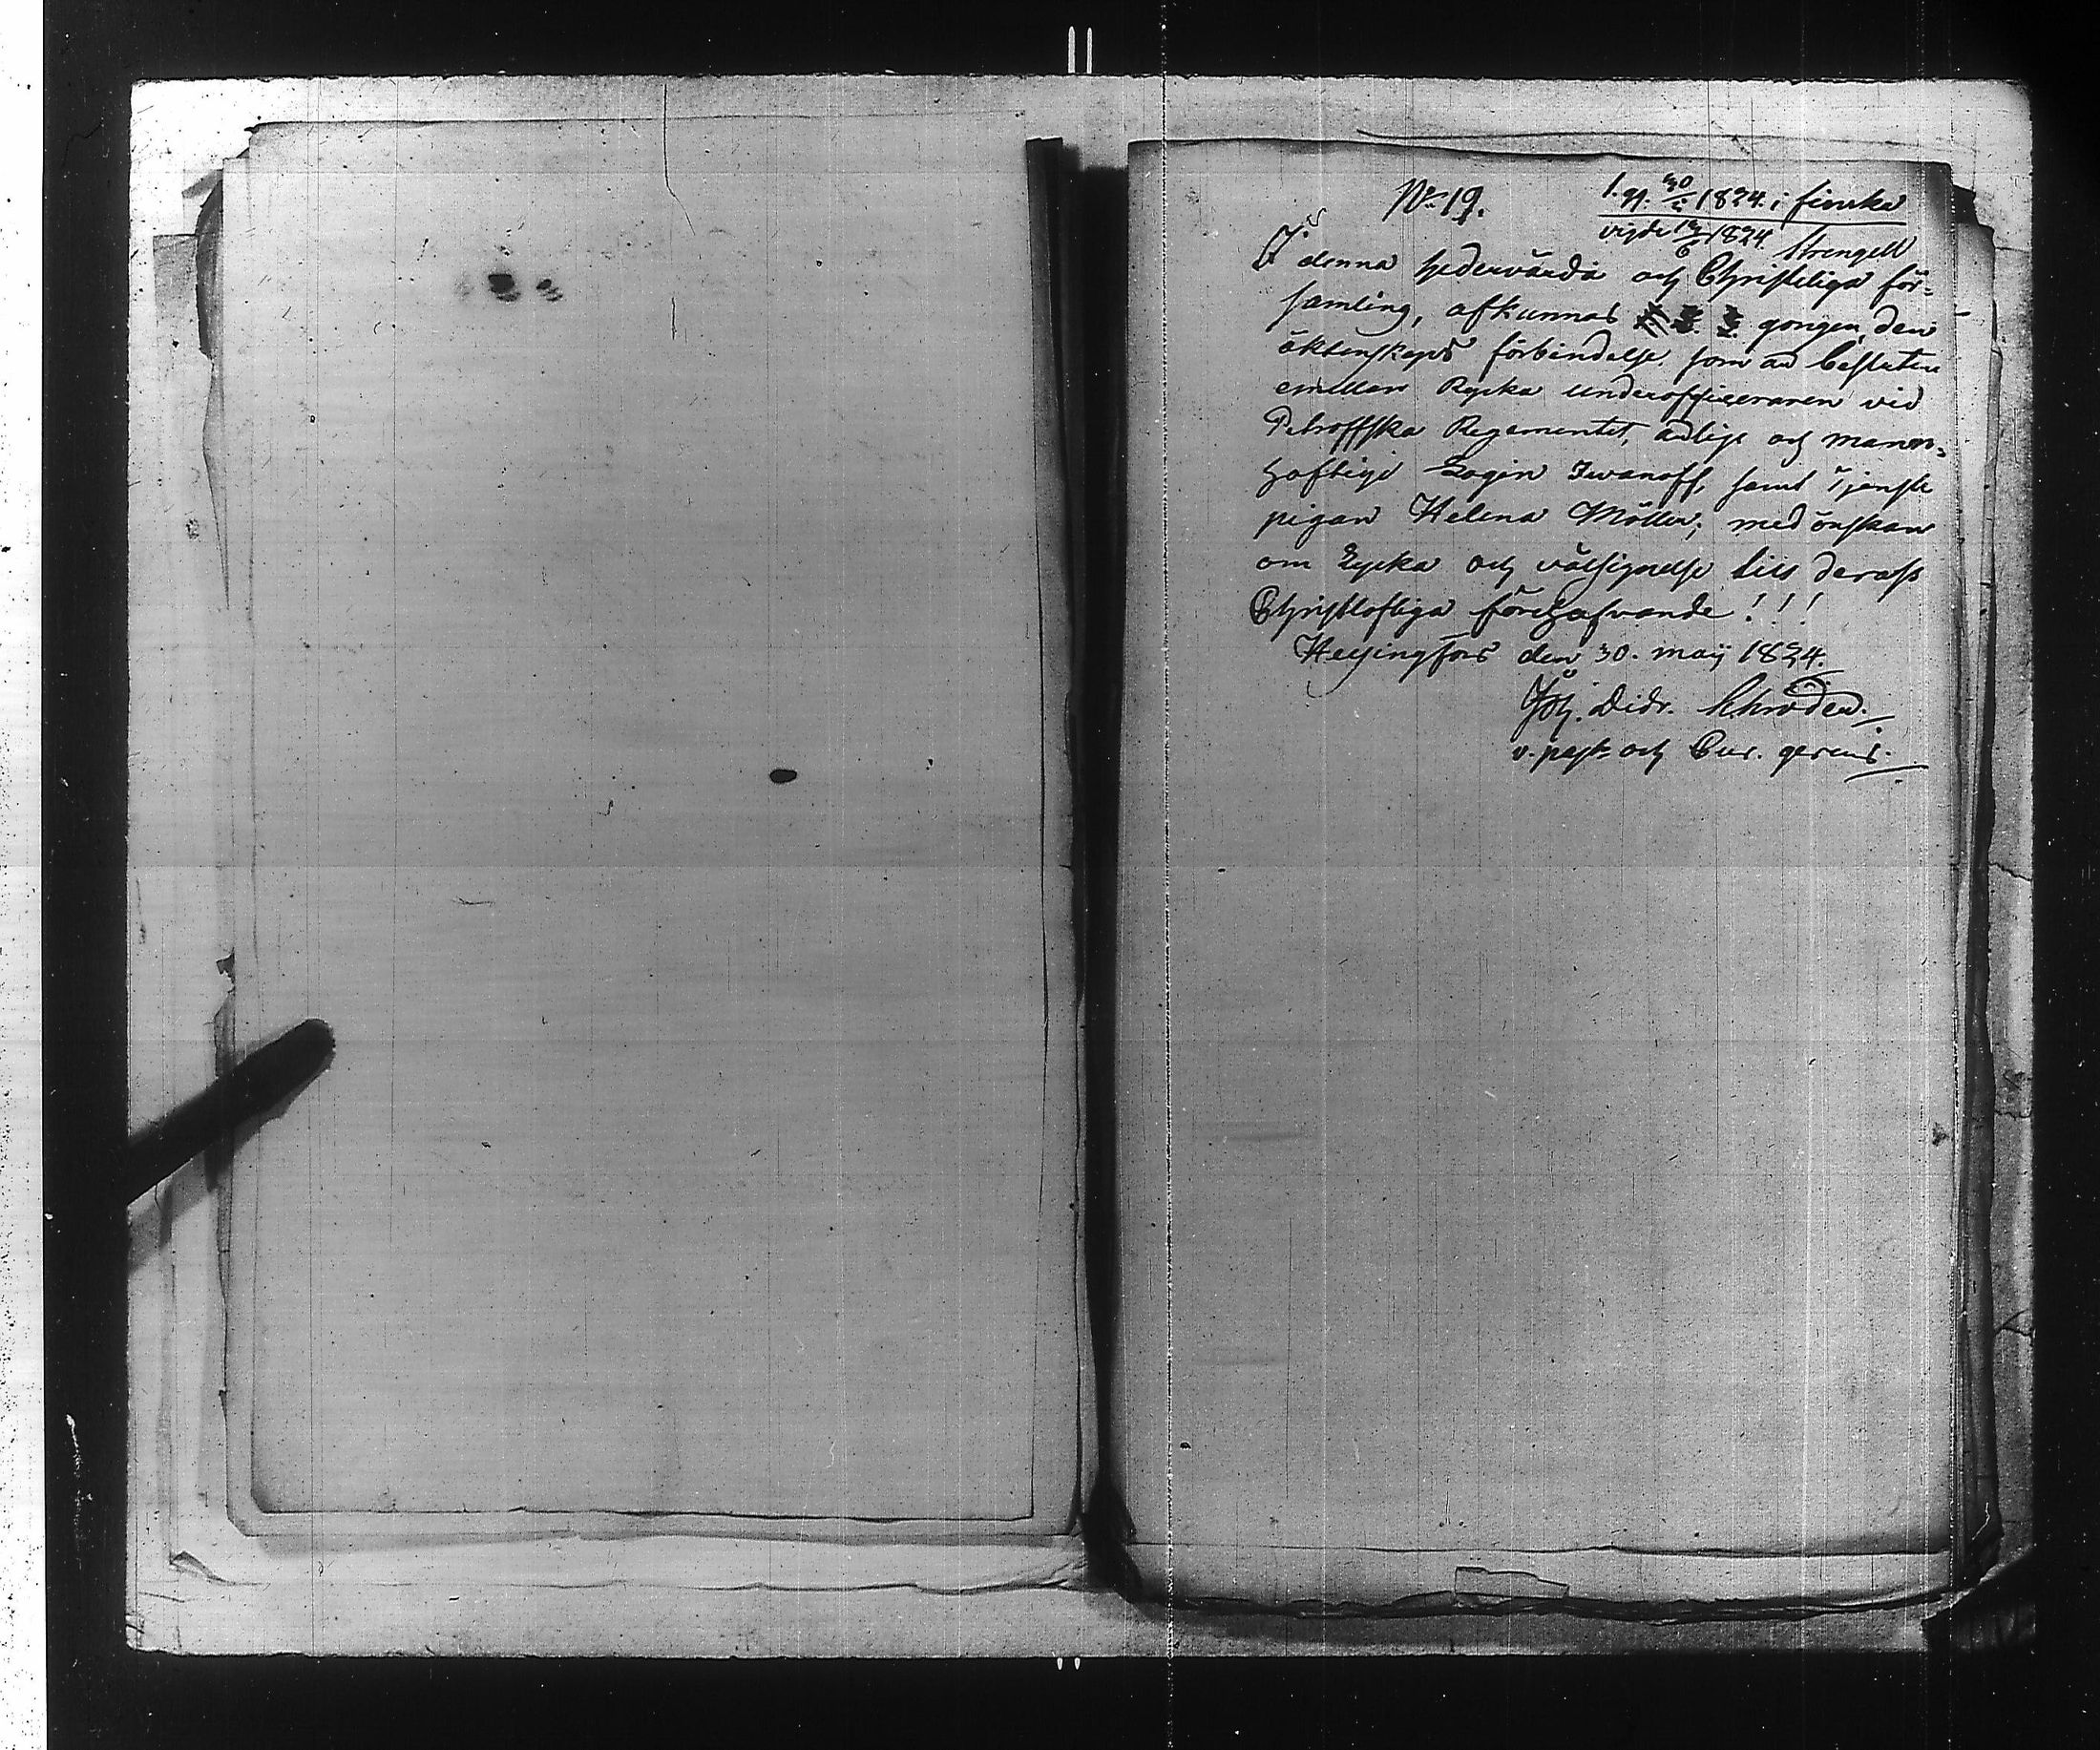 No 19.
1. gg. 30/5 1824. i finska
vigde 13/6 1824. Strengell
I denna hedervärda och Christeliga för=
samling, afkunnas gongen den
äktenskaps förbindelse som är besluten
emellan Ryska underofficeraren vid
Petroffska Regementet, ärlige och mann=
haftige Login Iwanoff, samt Tjenste
pigan Helena Möller; med önskan
om Lycka och välsignelse till derass
Christlofliga förehafvande!!!
Helsingfors den 30. maij 1824.
Joh. Didr. Schröder.
v. past. och Cur. gerens.